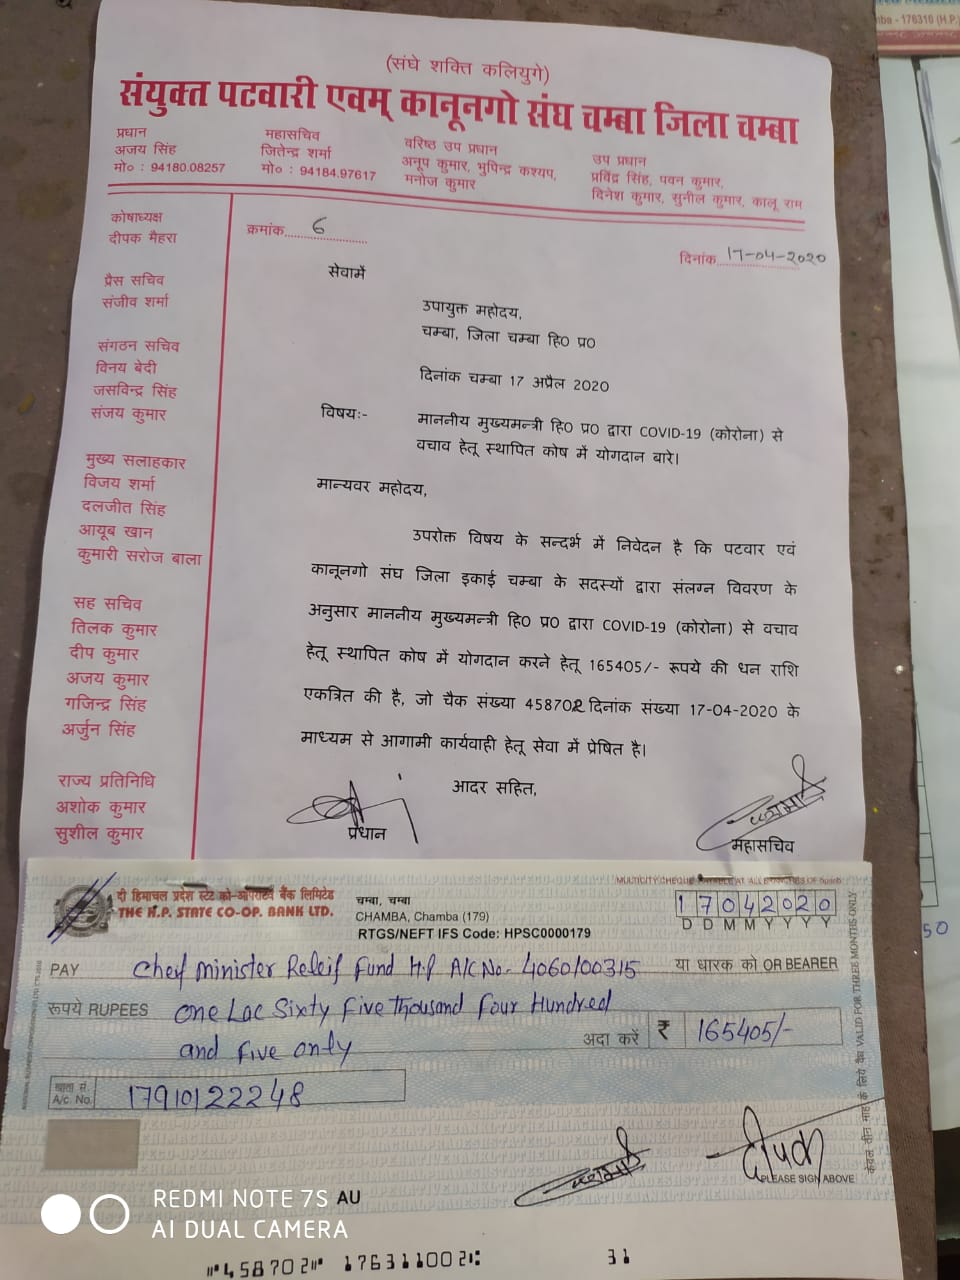 mba - 176310 (H.P.)
(संघे शक्ति कलियुगे)
संयुक्त पटवारी एवम् कानूनगो संघ चम्बा जिला चम्बा
प्रधान
अजय सिंह
मो० : 94180.08257
महासचिव
जितेन्द्र शर्मा
मो० : 94184.97617
वरिष्ठ उप प्रधान
अनूप कुमार, भुपिन्द्र कश्यप,
मनोज कुमार
उप प्रधान
प्रविंद्र सिंह, पवन कुमार,
दिनेश कुमार, सुनील कुमार, कालू राम
कोषाध्यक्ष
दीपक मैहरा
प्रैस सचिव
संजीव शर्मा
संगठन सचिव
विनय बेदी
जसविन्द्र सिंह
संजय कुमार
मुख्य सलाहकार
विजय शर्मा
दलजीत सिंह
आयूब खान
कुमारी सरोज बाला
सह सचिव
तिलक कुमार
दीप कुमार
अजय कुमार
गजिन्द्र सिंह
अर्जुन सिंह
राज्य प्रतिनिधि
अशोक कुमार
सुशील कुमार
क्रमांक 6
दिनांक 17-04-2020
सेवामें
उपायुक्त महोदय,
चम्बा, जिला चम्बा हि0 प्र0
दिनांक चम्बा 17 अप्रैल 2020
विषयः- माननीय मुख्यमन्त्री हि0 प्र0 द्वारा COVID-19 (कोरोना) से
वचाव हेतू स्थापित कोष में योगदान बारे।
मान्यवर महोदय,
उपरोक्त विषय के सन्दर्भ में निवेदन है कि पटवार एवं
कानूनगो संघ जिला इकाई चम्बा के सदस्यों द्वारा संलग्न विवरण के
अनुसार माननीय मुख्यमन्त्री हि0 प्र0 द्वारा COVID-19 (कोरोना) से वचाव
हेतू स्थापित कोष में योगदान करने हेतू 165405/- रूपये की धन राशि
एकत्रित की है, जो चैक संख्या 458702 दिनांक संख्या 17-04-2020 के
माध्यम से आगामी कार्यवाही हेतू सेवा में प्रेषित है।
आदर सहित,
प्रधान
महासचिव
दी हिमाचल प्रदेश स्टेट को-आपरेटिव बैंक लिमिटेड
THE H.P. STATE CO-OP. BANK LTD.
चम्बा, चम्बा
CHAMBA, Chamba (179)
RTGS/NEFT IFS Code: HPSC0000179
17042020
D D M M Y Y Y Y
PAY Cheif Minister Releif Fund H.P A/C No- 4060100315 या धारक को OR BEARER
रूपये RUPEES One Lac Sixty Five Thousand Four Hundred
and Five only
अदा करें ₹ 165405/-
खाता सं.
A/c. No. 17910122248
केवल तीन माह के लिये वैध VALID FOR THREE MONTHS ONLY
दीपक
PLEASE SIGN ABOVE
REDMI NOTE 7S AU
AI DUAL CAMERA
⑈458702⑈ 176311002⑆ 31
50